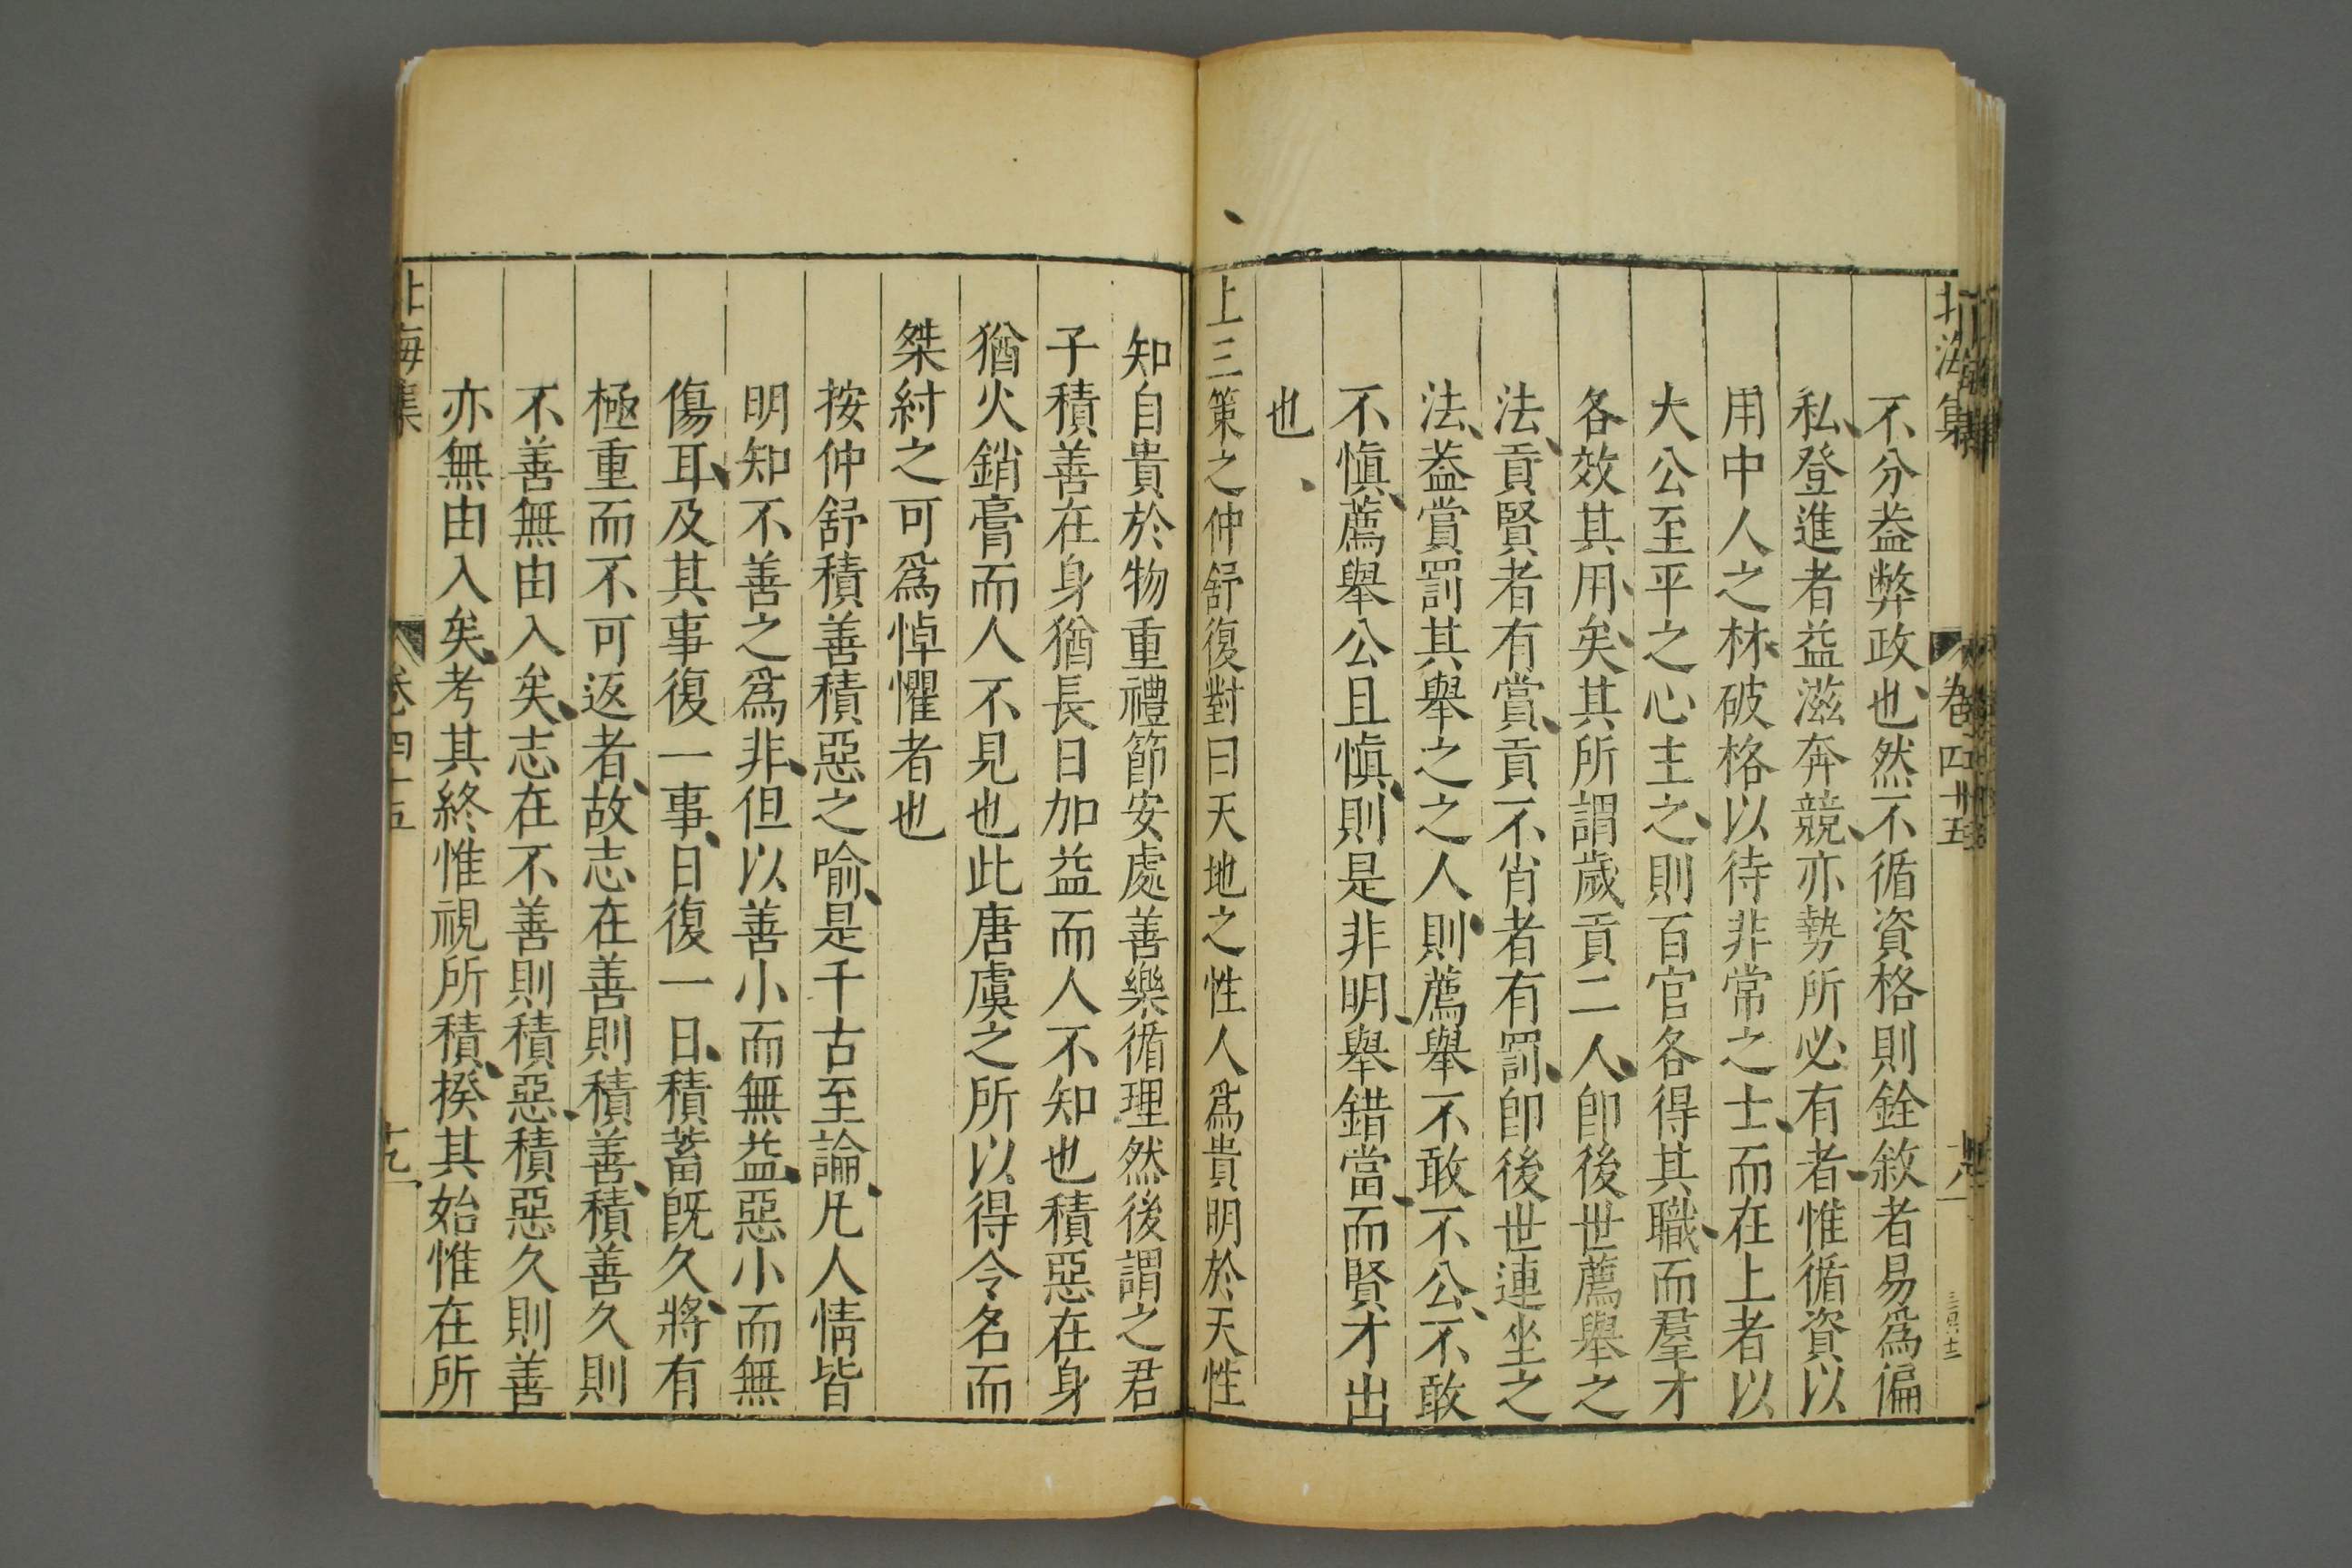 北海集 卷四十五
不分益弊政也然不循資格則銓敘者易爲偏
私登進者益滋奔競亦勢所必有者惟循資以
用中人之材破格以待非常之士而在上者以
大公至平之心主之則百官各得其職而羣才
各效其用矣其所謂歲貢二人卽後世薦舉之
法貢賢者有賞貢不肖者有罰卽後世連坐之
法葢賞罰其舉之之人則薦舉不敢不公不敢
不愼薦舉公且愼則是非明舉錯當而賢才出
也
上三策之仲舒復對曰天地之性人爲貴明於天性
知自貴於物重禮節安處善樂循理然後謂之君
子積善在身猶長日加益而人不知也積惡在身
猶火銷膏而人不見也此唐虞之所以得令名而
桀紂之可爲悼懼者也
按仲舒積善積惡之喻是千古至論凡人情皆
明知不善之爲非但以善小而無益惡小而無
傷耳及其事復一事日復一日積蓄旣久將有
極重而不可返者故志在善則積善積善久則
不善無由入矣志在不善則積惡積惡久則善
亦無由入矣考其終惟視所積揆其始惟在所
北海集 卷四十五 十九